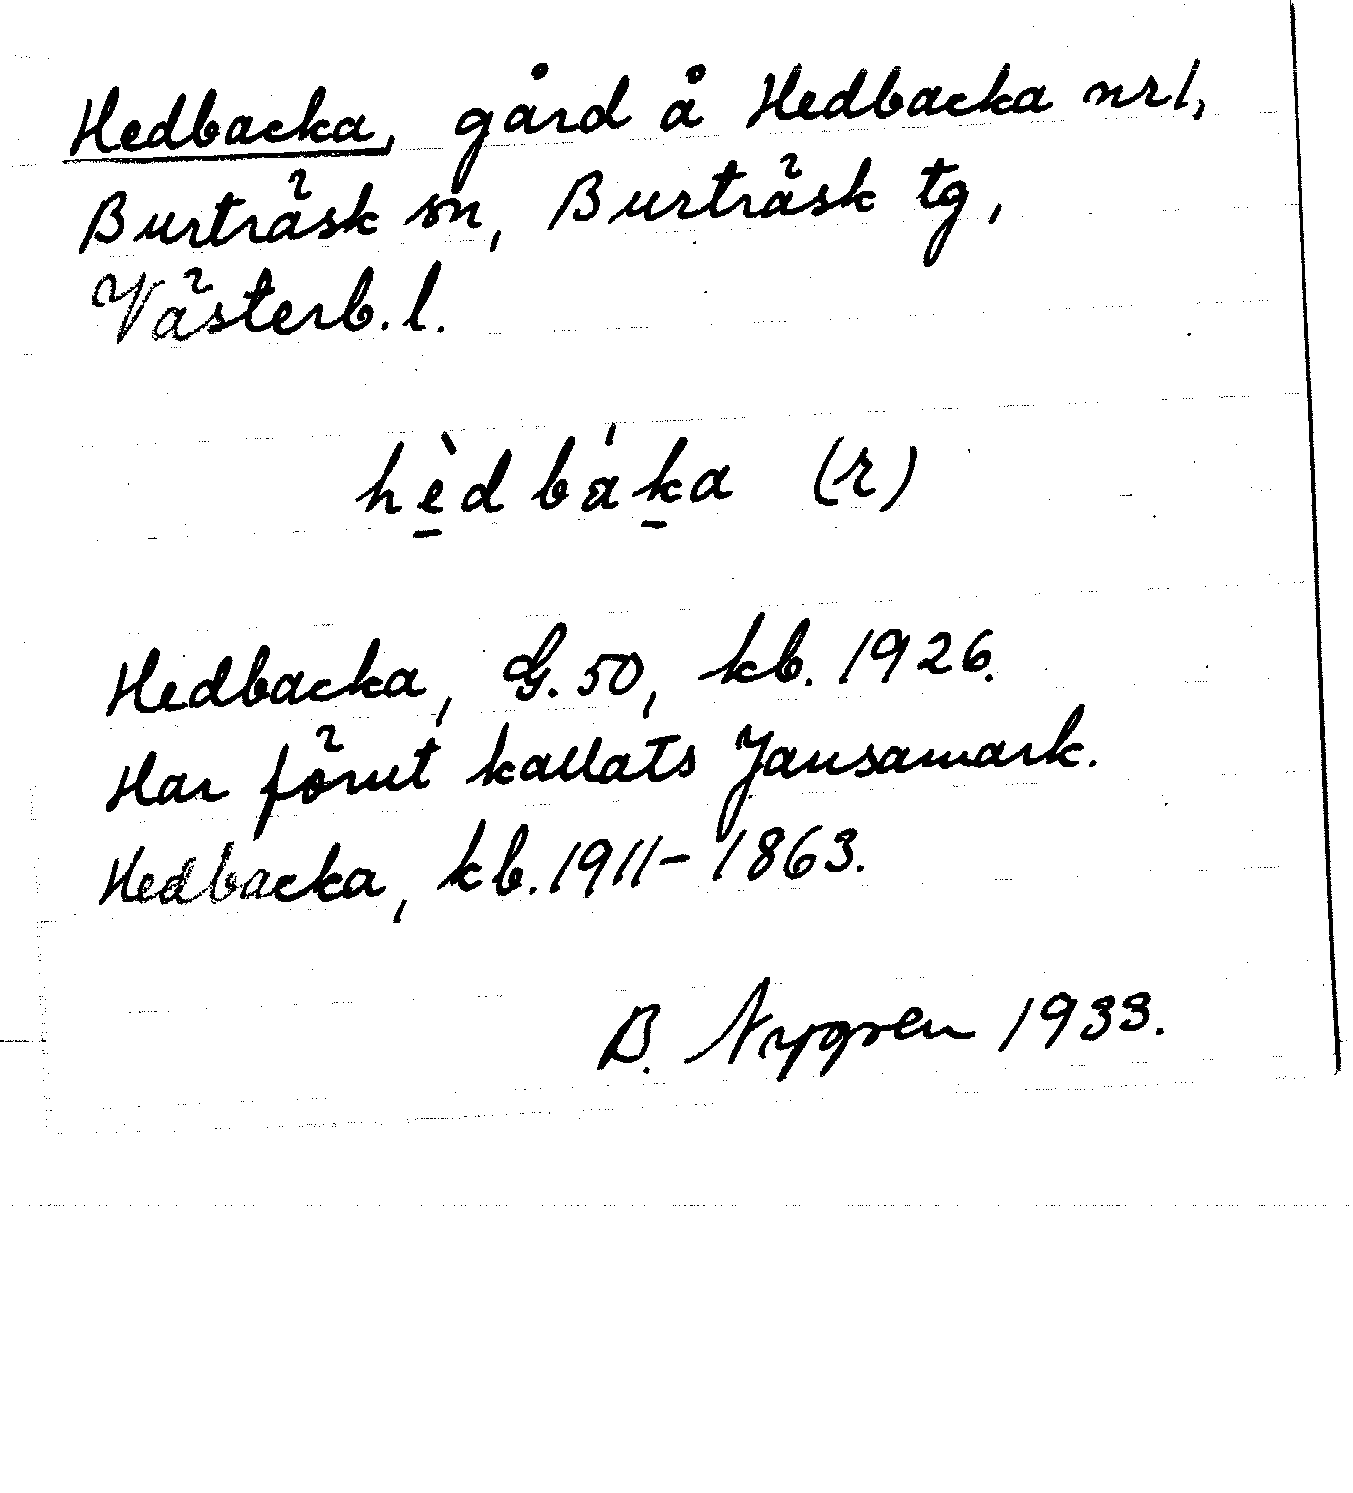 Hedbacka, gård å Hedbacka nr 1,
Burträsk sn, Burträsk tg,
Västerb. l.
hè̱dbáḵa (r)
Hedbacka, G. 50, kb. 1926.
Har förut kallats Jansamark.
Hedbacka, kb. 1911-1863.
B. Nygren 1933.